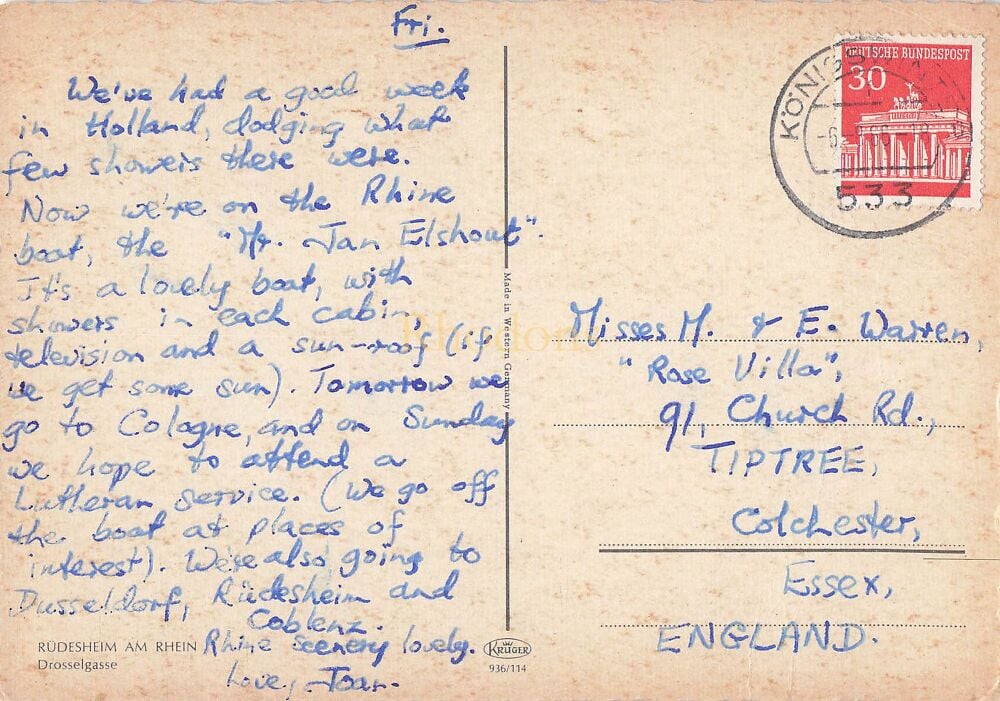 Fri.
We've had a good week
in Holland, dodging what
few showers there were.
Now we're on the Rhine
boat, the "Mr. Jan Elshout".
It's a lovely boat, with
showers in each cabin,
television and a sun-roof (if
we get some sun). Tomorrow we
go to Cologne, and on Sunday
we hope to attend a
Lutheran service. (We go off
the boat at places of
interest). We're also going to
Dusseldorf, Rüdesheim and
Coblenz.
Rhine scenery lovely.
Love, Joan.
RÜDESHEIM AM RHEIN
Drosselgasse
Made in Western Germany
KRÜGER
936/114
DEUTSCHE BUNDESPOST
30
533
Misses M. & E. Warren,
"Rose Villa",
91, Church Rd.,
TIPTREE,
Colchester,
Essex,
ENGLAND.